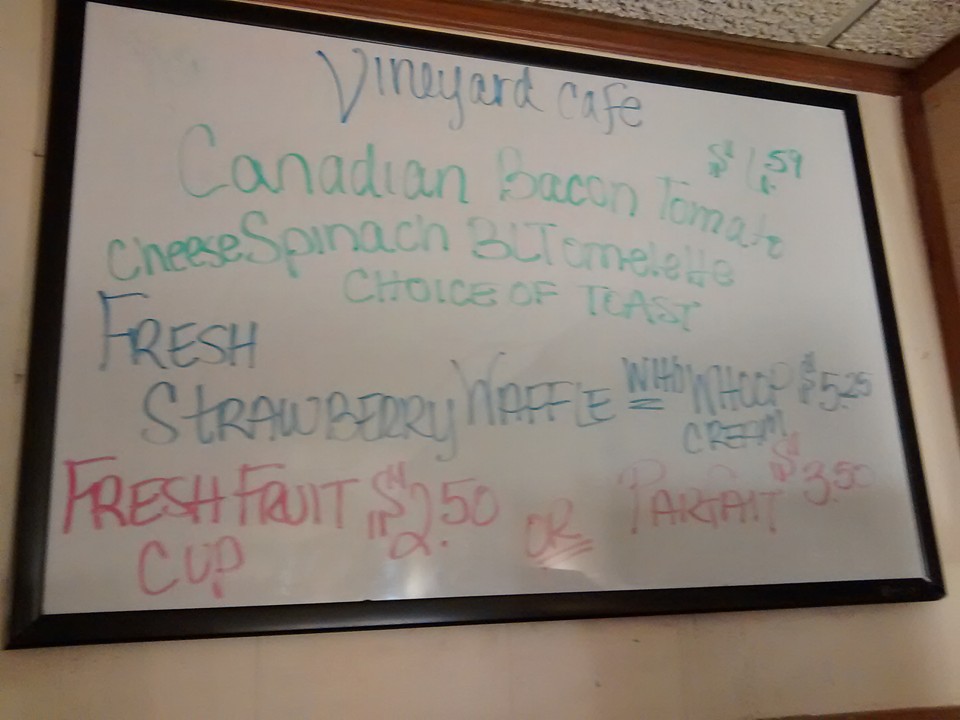 Vineyard cafe
Canadian Bacon Tomato
cheese Spinach BLT omelette
CHOICE OF TOAST
FRESH
STRAWBERRY WAFFLE WHOOP $5.25
CREAM
FRESH FRUIT $2.50 OR PARFAIT $3.50
CUP